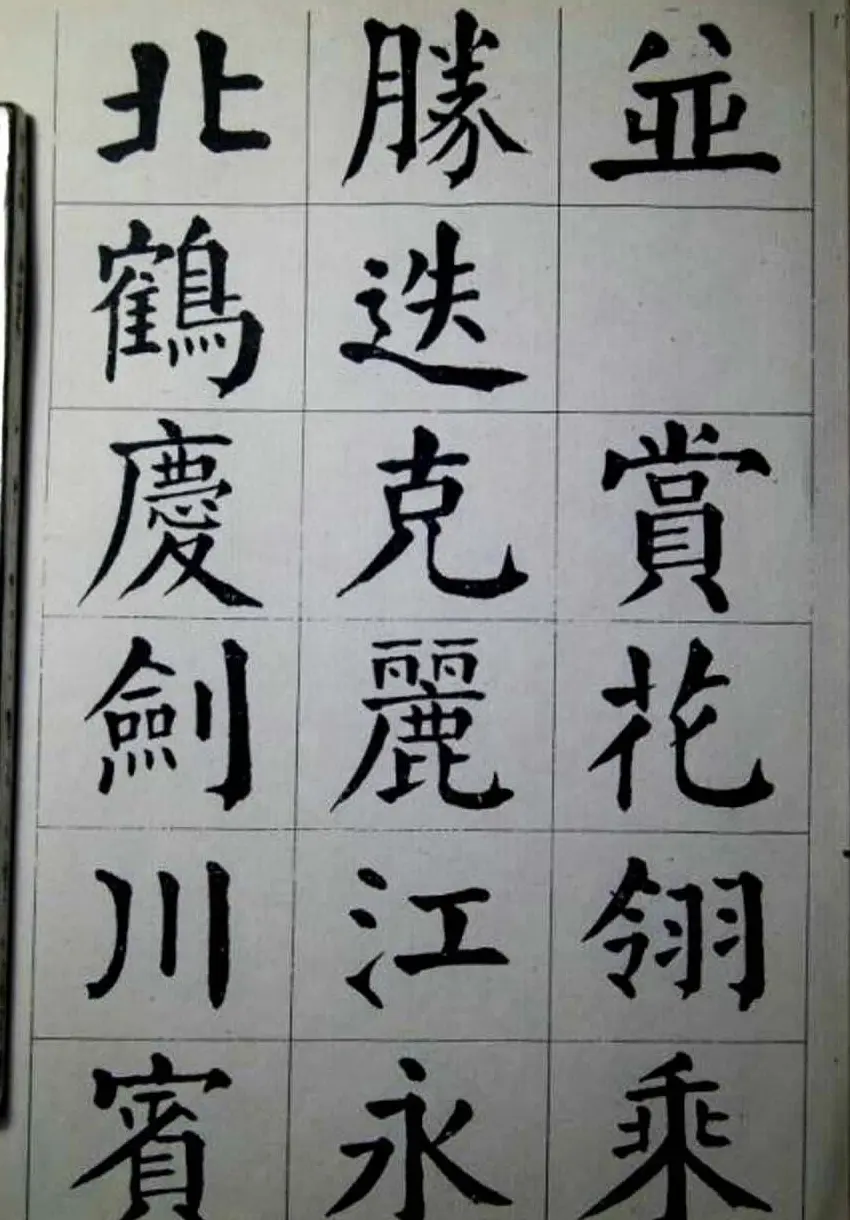 並　賞花翎乘
勝迭克麗江永
北鶴慶劍川賓